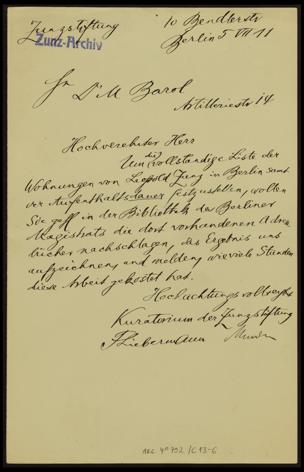 Zunzstiftung
Zunz-Archiv
10 Bendlerstr
Berlin 5 VII 11
Hn Dr M Barol
Artilleriestr 14
Hochverehrter Herr
Um die vollständige Liste der
Wohnungen von Leopold Zunz in Berlin samt
der Aufenthaltsdauer festzustellen, wollen
Sie gefl in der Bibliothek des Berliner
Magistrats die dort vorhandenen Adress
bücher nachschlagen, das Ergebnis uns
aufzeichnen, und melden, wieviele Stunden
diese Arbeit gekostet hat.
Hochachtungsvoll
Kuratorium der Zunzstiftung
F Liebermann
ARC 4° 792 / C 13-6